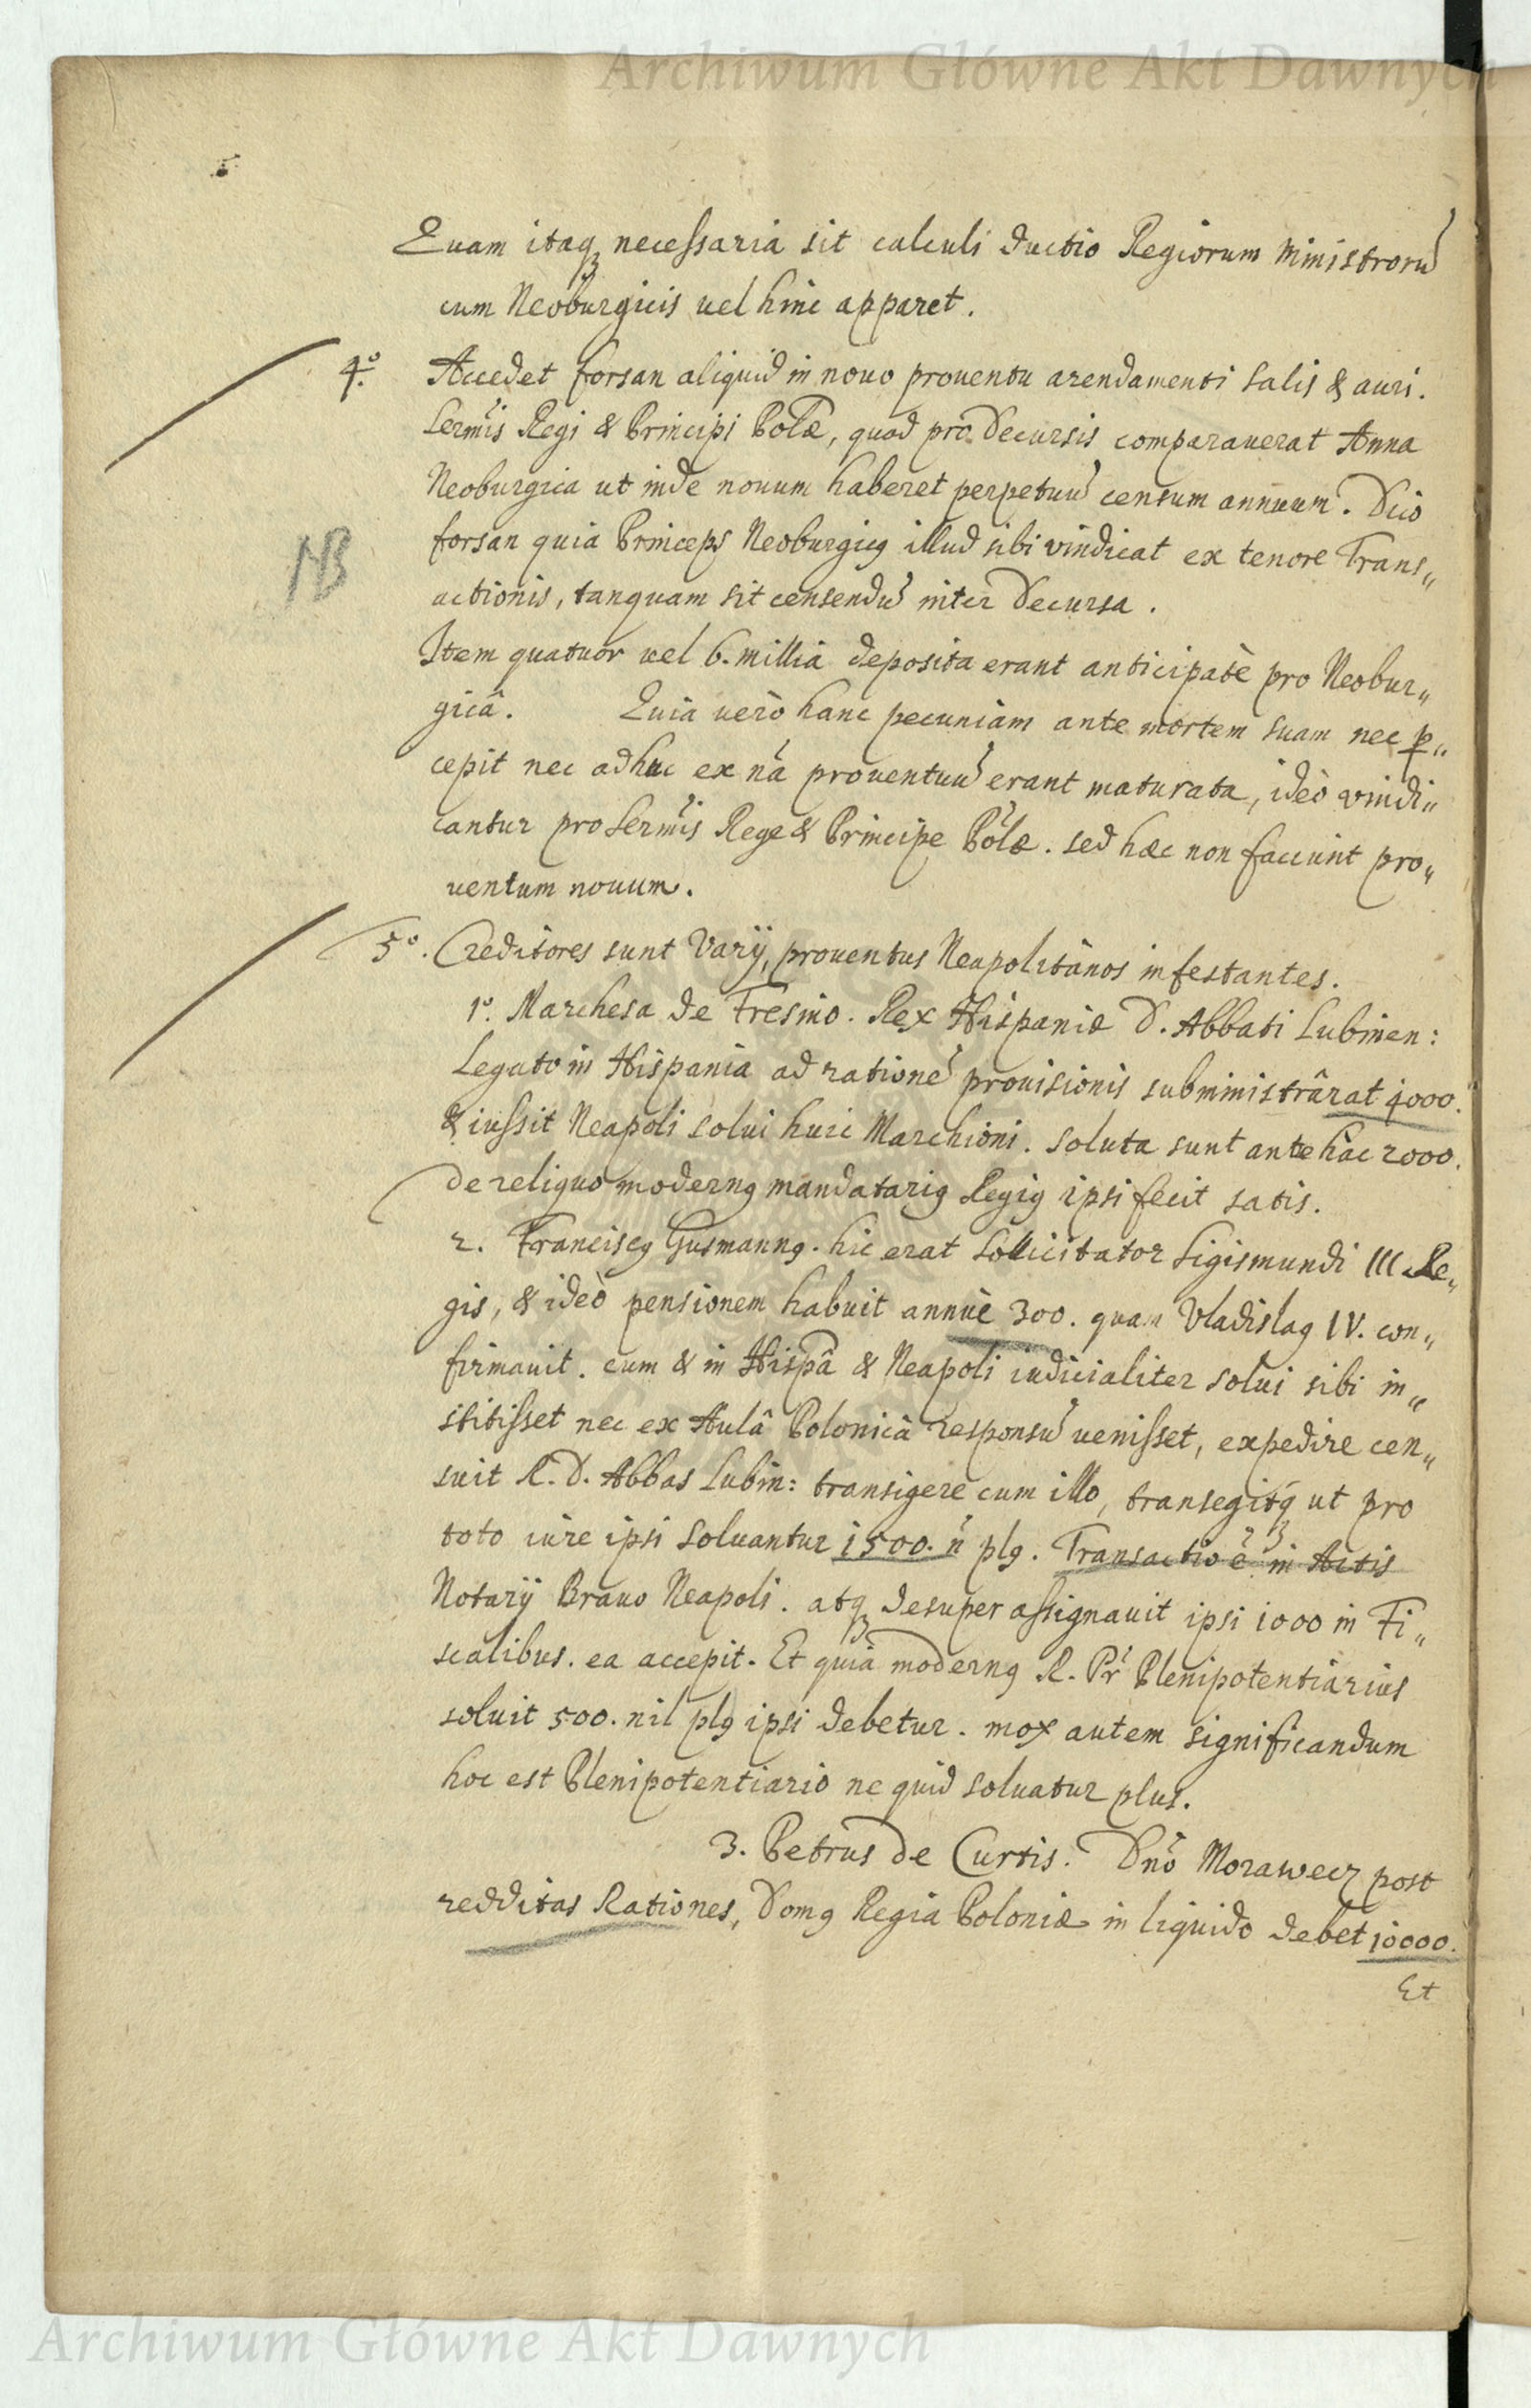 Archiwum Główne Akt Dawnych
Quam itaqꝫ necessaria sit calculi ductio Regiorum Ministrorũ
cum Neoburgicis uel hinc apparet.
4.º Accedet forsan aliquid in nouo prouentu arendamenti salis & auri.
Sermis Regi & Principi Polæ, quod pro Decursis comparauerat Anna
Neoburgica ut inde nouum haberet perpetuũ censum annuum. Dico
NB
forsan quia Princeps Neoburgicꝰ illud sibi vindicat ex tenore Trans„
actionis, tanquam sit censendũ inter Decursa.
Item quatuor uel 6. millia deposita erant anticipatè pro Neobur„
gicâ. Quia uerò hanc pecuniam ante mortem suam nec ꝑ„
cepit nec adhuc ex nã prouentuũ erant maturata, ideò vindi„
cantur pro Sermis Rege & Principe Polæ. sed hæc non faciunt pro„
uentum nouum.
5º. Creditores sunt Varÿ, prouentus Neapolitanos infestantes.
1º. Marchesa de Fresino. Rex Hispaniæ D. Abbati Lubinen:
Legato in Hispania ad rationẽ prouisionis subministrârat 4000.
& iussit Neapoli solui huic Marchioni. soluta sunt ante hac 2000.
de reliquo modernꝰ mandatariꝰ Regiꝰ ipsi fecit satis.
2. Franciscꝰ Gusmannꝰ. hic erat sollicitator Sigismundi III Re„
gis, & ideò pensionem habuit annuè 300. quam Vladislaꝰ IV. con„
firmauit. cum & in Hispâ & Neapoli iudicialiter solui sibi in„
stitisset nec ex Aulâ Polonicâ responsũ uenisset, expedire cen„
suit R. D. Abbas Lubin: transigere cum illo, transegitqꝫ ut pro
toto iure ipsi soluantur 1500. ñ plꝰ. Transactio ẽ in Actis
Notarÿ Brauo Neapoli. atqꝫ desuper assignauit ipsi 1000 in Fi„
scalibus. ea accepit. Et quia modernꝰ R. Pr Plenipotentiarius
soluit 500. nil plꝰ ipsi debetur. mox autem significandum
hoc est Plenipotentiario ne quid soluatur plus.
3. Petrus de Curtis. Dno Morawecz post
redditas Rationes, Domꝰ Regia Poloniæ in liquido debet 10000.
Et
Archiwum Główne Akt Dawnych